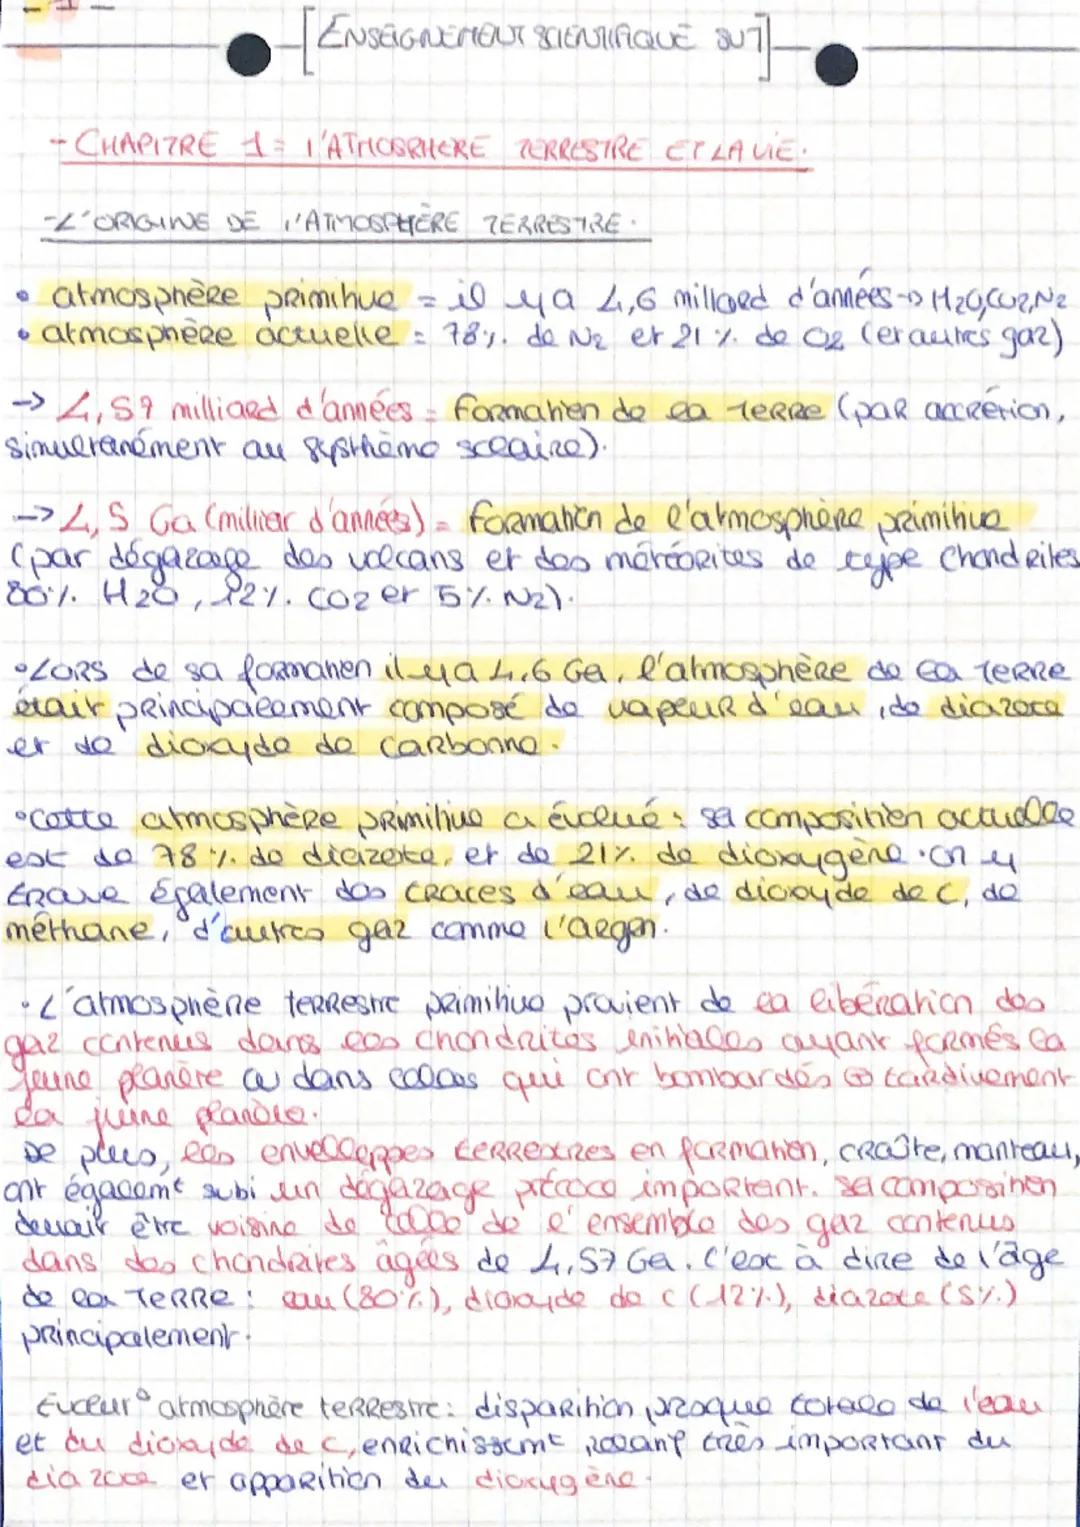 - 1 -
[ENSEIGNEMENT SCIENTIFIQUE SVT]
- CHAPITRE 1 = l'ATMOSPHERE TERRESTRE ET LA VIE.
- L'ORIGINE DE l'ATMOSPHÈRE TERRESTRE.
• atmosphère primitive = il y a 4,6 milliard d'années -> H2O, CO2, N2
• atmosphère actuelle = 78% de N2 et 21% de O2 (et autres gaz)
-> 4,57 milliard d'années = formation de la Terre (par accrétion,
simultanément au systhème solaire).
-> 4,5 Ga (milliar d'années) = formation de l'atmosphère primitive
(par dégazage des volcans et des météorites de type Chondrites
80% H2O, 12% CO2 et 5% N2).
• Lors de sa formation il y a 4,6 Ga, l'atmosphère de la Terre
était principalement composé de vapeur d'eau, de diazote
et de dioxyde de carbonne.
• Cette atmosphère primitive a évolué : sa composition actuelle
est de 78% de diazote, et de 21% de dioxygène. On y
trouve également des traces d'eau, de dioxyde de C, de
méthane, d'autres gaz comme l'argon.
• L'atmosphère terrestre primitive provient de la libération des
gaz contenus dans les chondrites initiales ayant formés la
jeune planète ou dans celles qui ont bombardés tardivement
la jeune planète.
De plus, les envelloppes terrestres en formation, croûte, manteau,
ont égalemt subi un dégazage précoce important. Sa composition
devait être voisine de celle de l'ensemble des gaz contenus
dans des chondrites âgées de 4,57 Ga. C'est à dire de l'âge
de la Terre : eau (80%), dioxyde de C (12%), diazote (5%)
principalement.
Évolut° atmosphère terrestre : disparition presque totale de l'eau
et du dioxyde de C, enrichissemt relatif très important du
diazote et apparition du dioxygène.